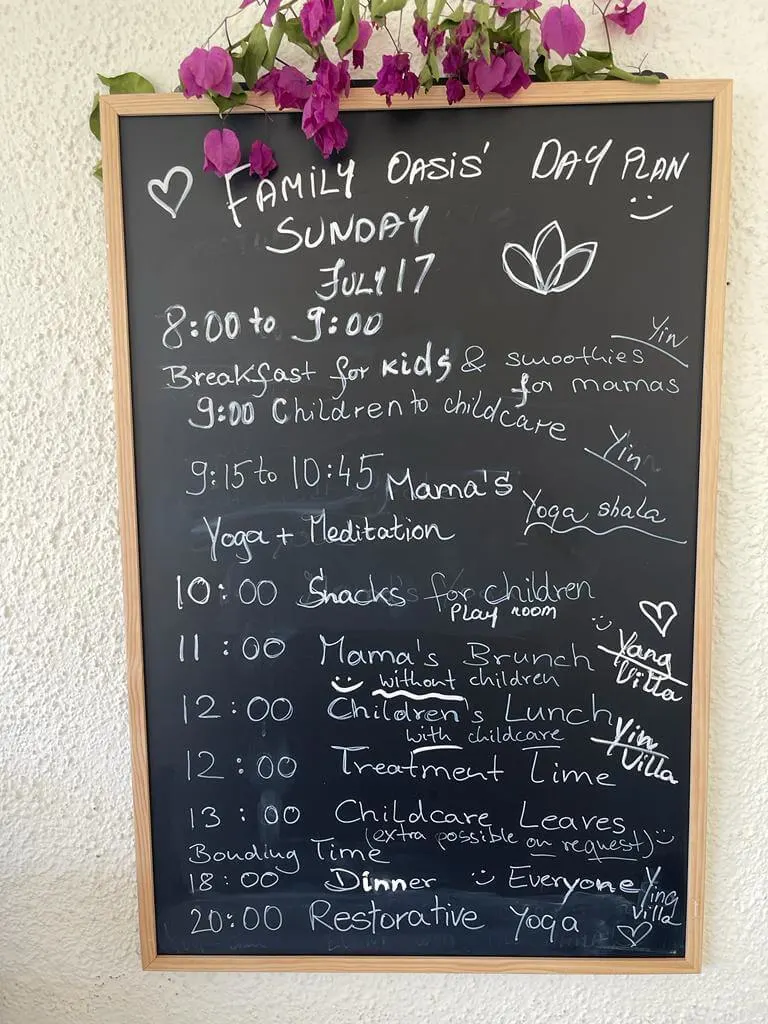 FAMILY OASIS' DAY PLAN
SUNDAY
JULY 17
8:00 to 9:00
Yin
Breakfast for kids & smoothies
for mamas
9:00 Children to childcare
Yin
9:15 to 10:45 Mama's
Yoga shala
Yoga + Meditation
10:00 Snacks for children
Play room
11:00 Mama's Brunch
Yang Villa
without children
12:00 Children's Lunch
Yin Villa
with childcare
12:00 Treatment Time
13:00 Childcare Leaves
(extra possible on request)
Bonding Time
18:00 Dinner Everyone
Ying Villa
20:00 Restorative Yoga